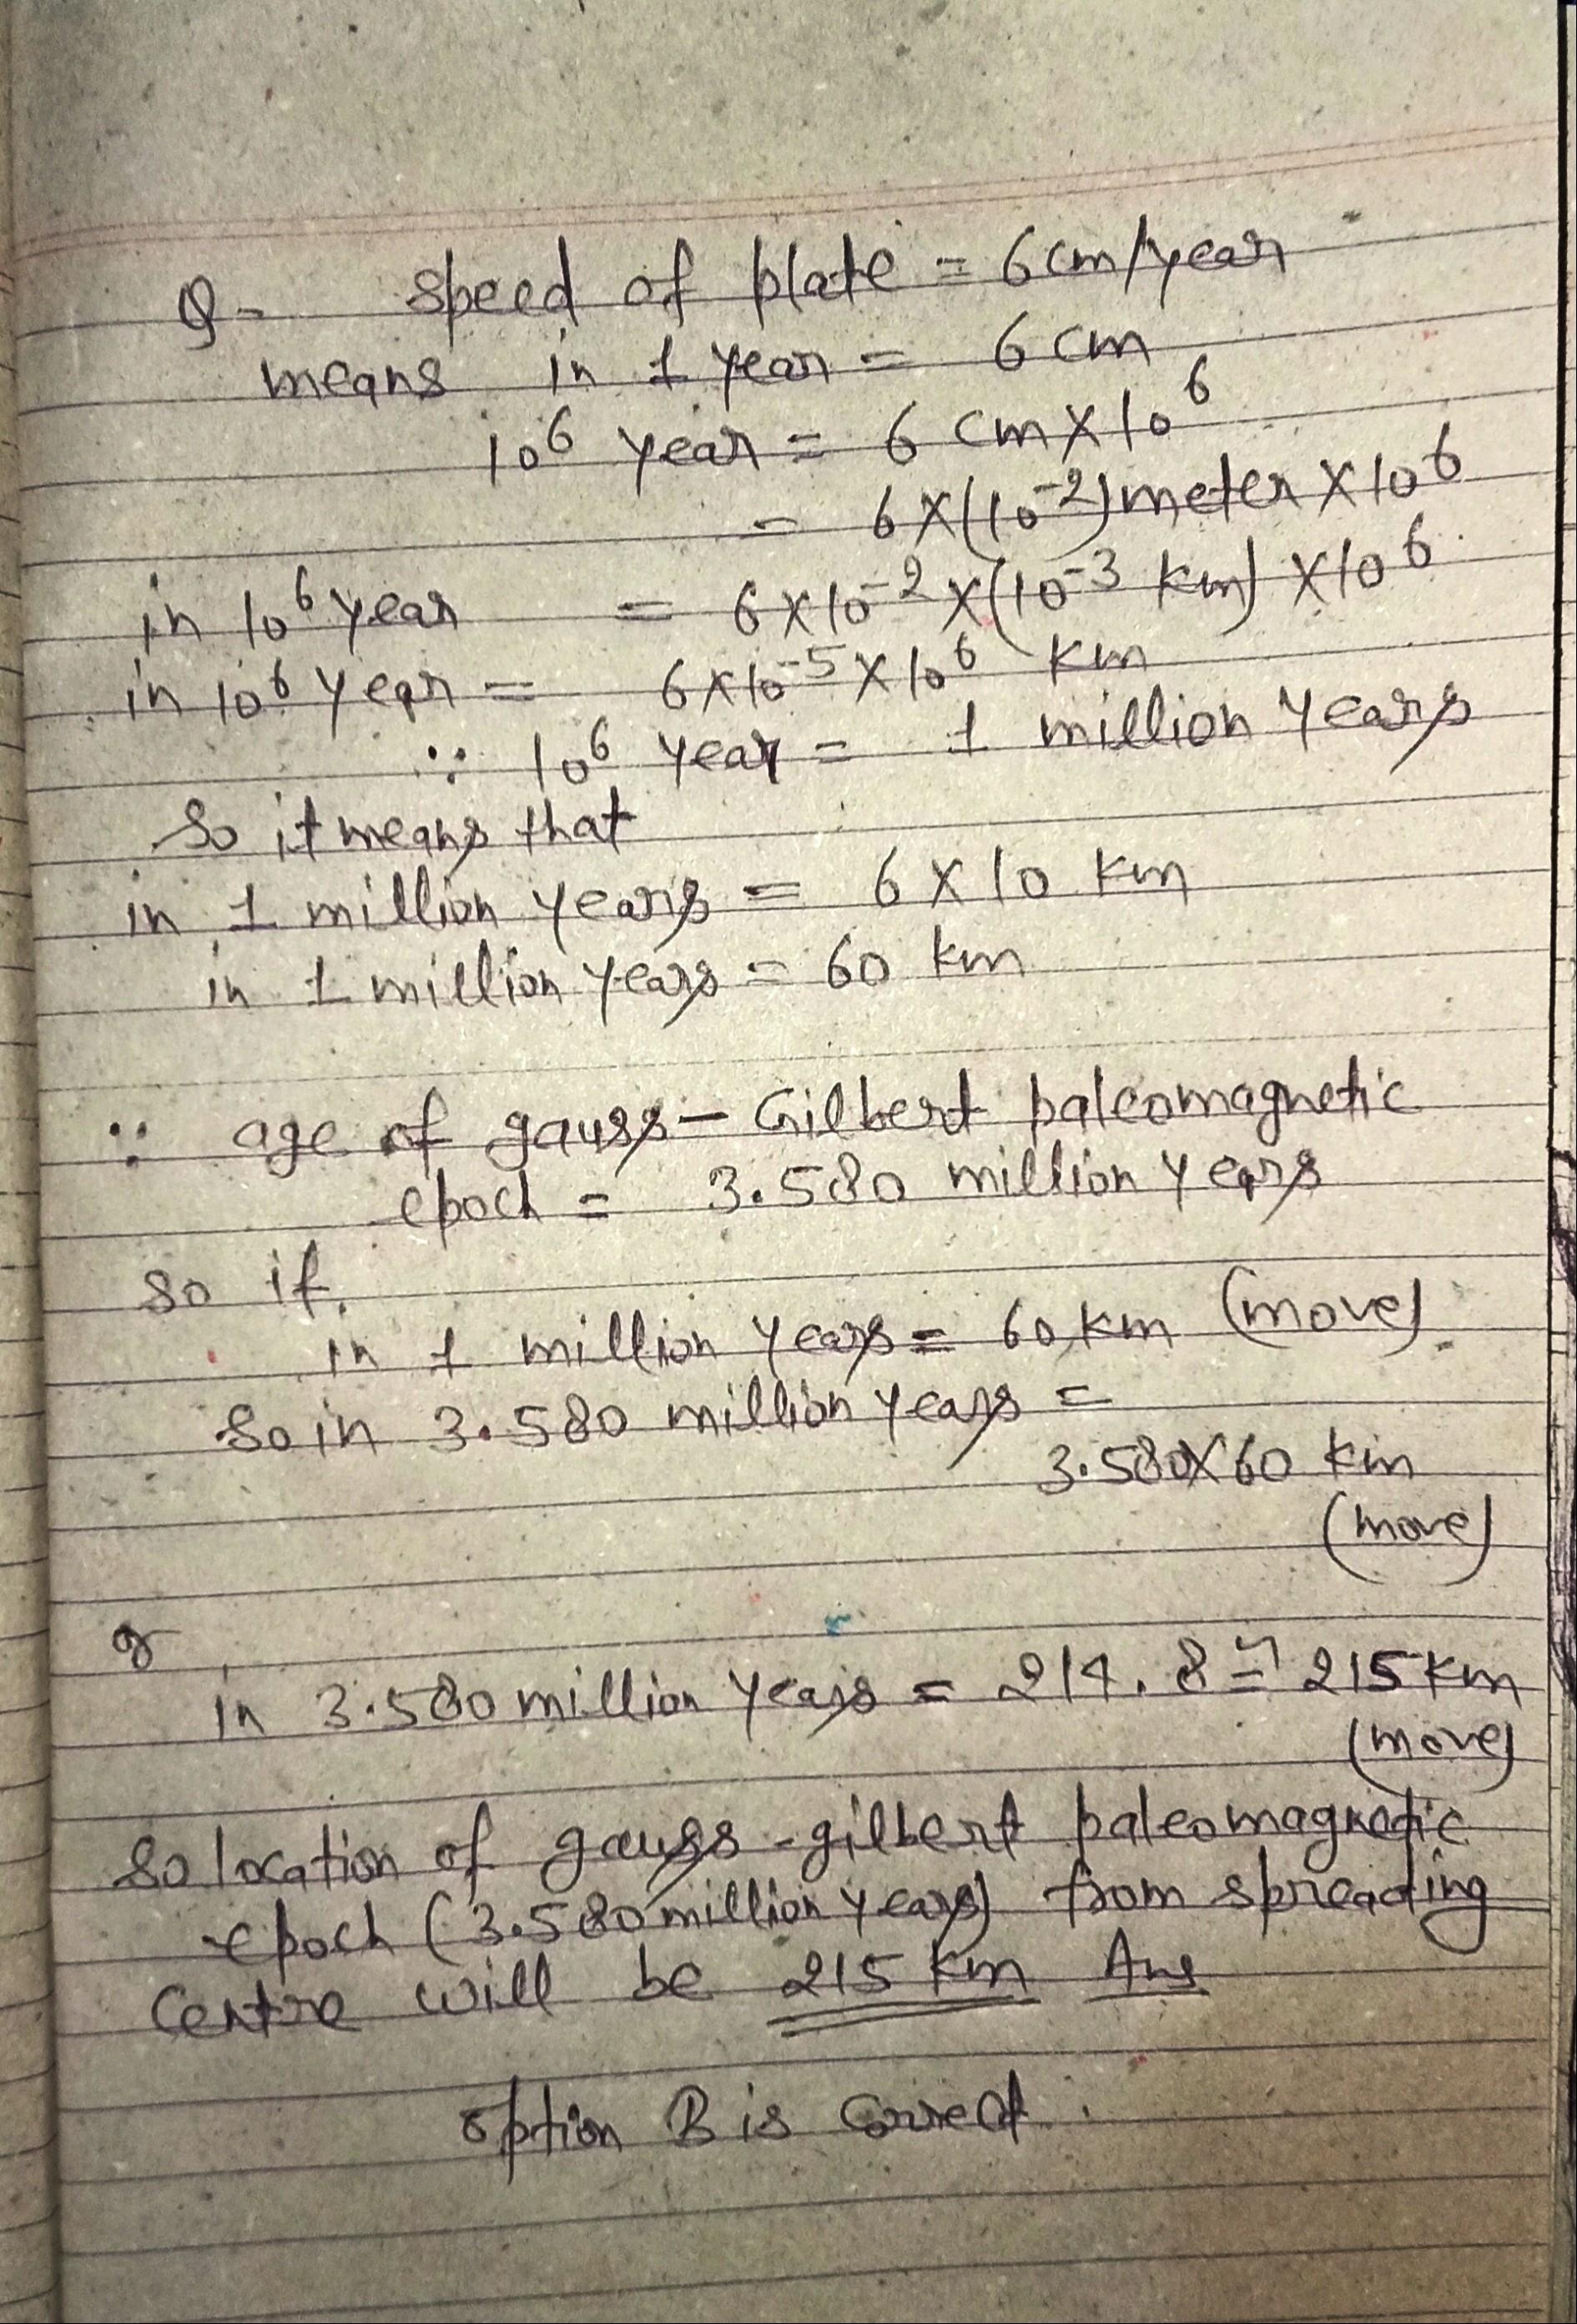 Q- speed of plate = 6 cm/year
means in 1 year = 6 cm
10^6 year = 6 cm X 10^6
= 6 X (10^-2) meter X 10^6
in 10^6 year = 6 X 10^-2 X (10^-3 km) X 10^6
in 10^6 year = 6 X 10^-5 X 10^6 km
∵ 10^6 year = 1 million years
So it means that
in 1 million years = 6 X 10 km
in 1 million years = 60 km
∵ age of gauss - Gilbert paleomagnetic
epoch = 3.580 million years
so if,
in 1 million years = 60 km (move)
So in 3.580 million years =
3.580X60 km
(move)
or
in 3.580 million years = 214.8 ≃ 215 km
(move)
So location of gauss - gilbert paleomagnetic
epoch (3.580 million years) from spreading
Centre will be 215 km Ans
option B is correct.